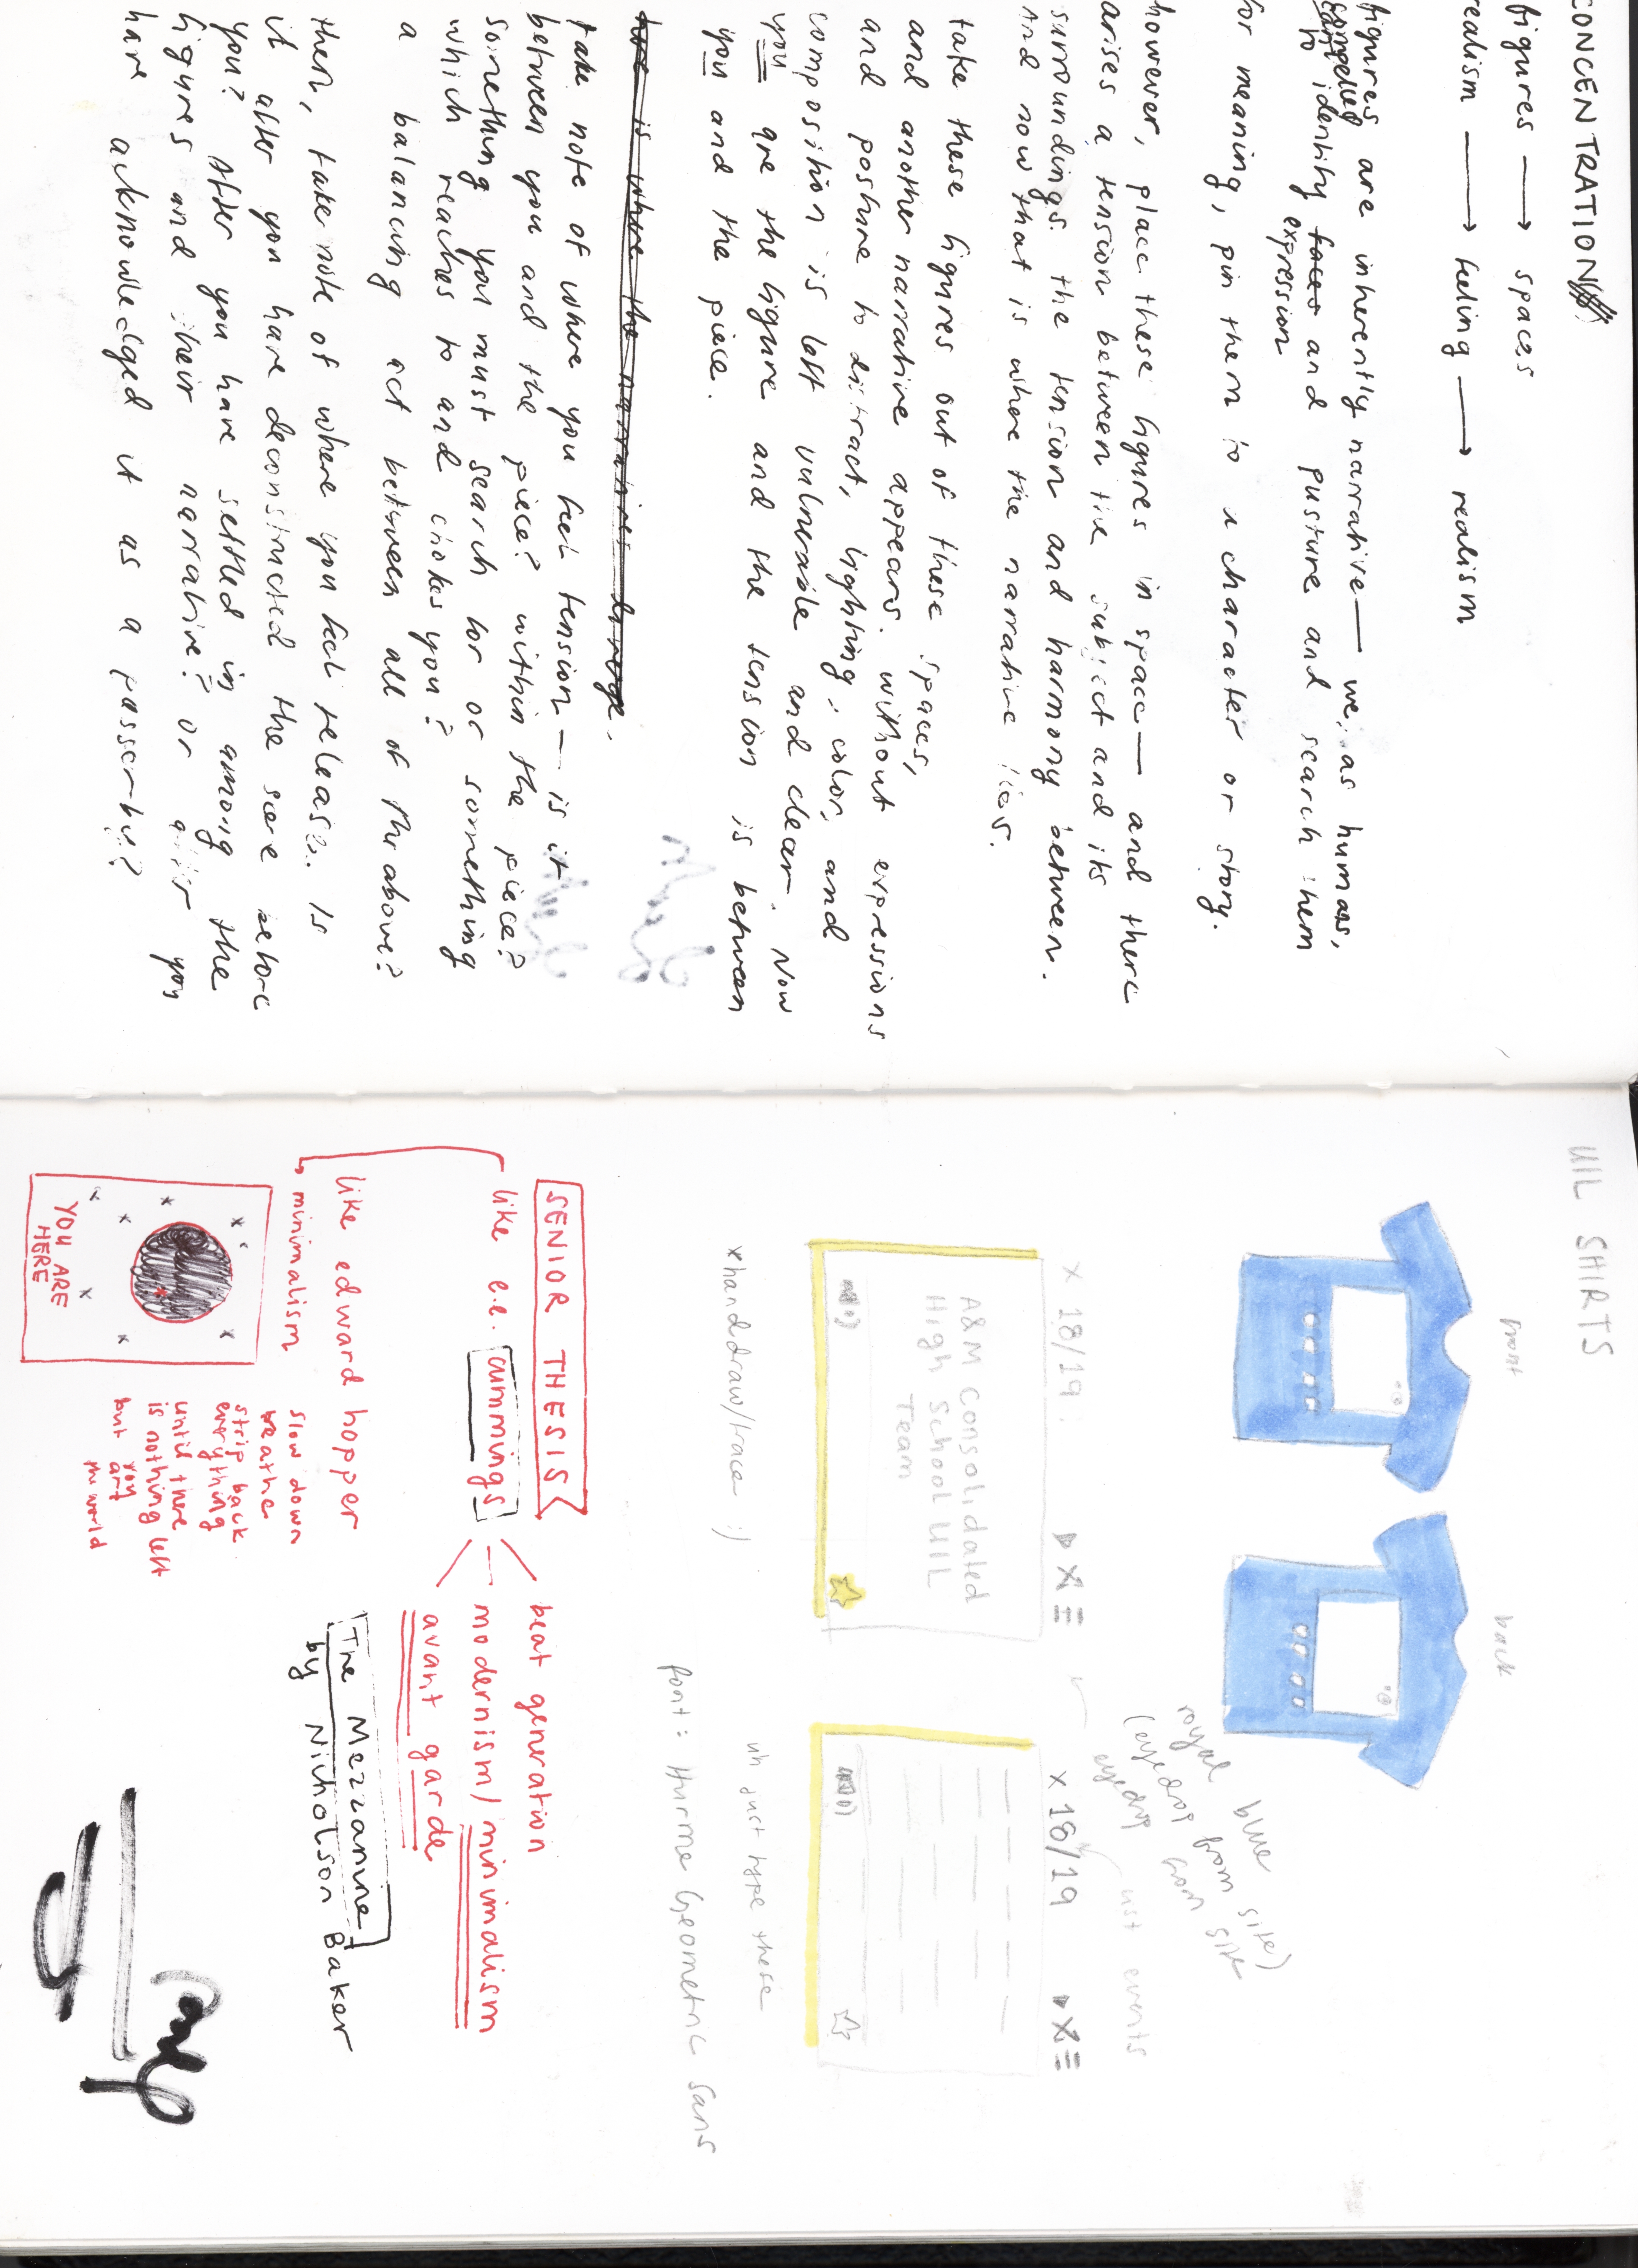 CONCENTRATION
figures → spaces
realism → feeling → realism
figures are inherently narrative — we, as humans,
compelled
to identify faces and posture and search them
expression
for meaning, pin them to a character or story.
however, place these figures in space — and there
arises a tension between the subject and its
surroundings. the tension and harmony between.
and now that is where the narrative lies.
take these figures out of these spaces,
and another narrative appears. without expressions
and posture to distract, lighting, color, and
composition is left vulnerable and clear. Now
you are the figure and the tension is between
you and the piece.
here is where the narratives diverge.
take note of where you feel tension — is it
between you and the piece? within the piece?
something you must search for or something
which reaches to and chokes you?
a balancing act between all of the above?
then, take note of where you feel release. Is
it after you have deconstructed the scene before
you? After you have settled in among the
figures and their narrative? or after you
have acknowledged it as a passerby?
UIL SHIRTS
front
back
royal blue
(eyedrop from site)
eyedrop from site
x 18/19
A&M Consolidated
High School UIL
Team
x hand draw/trace :)
x 18/19
list events
uh just type these
font: Hurme Geometric Sans
SENIOR THESIS
like e.e. cummings
beat generation
modernism/minimalism
avant garde
like edward hopper
minimalism
The Mezzanine
by Nicholson Baker
YOU ARE
HERE
slow down
breathe
strip back
everything
until there
is nothing left
but you
art
the world